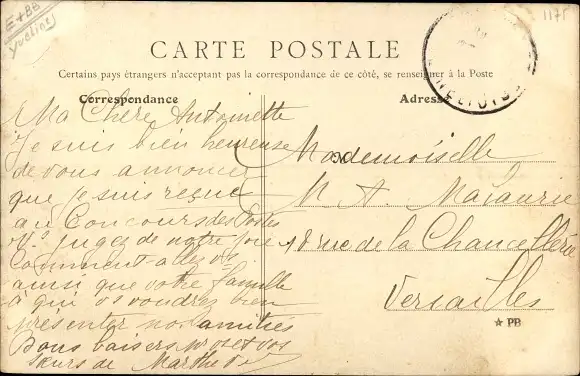 E+BB
Yveline
1175
CARTE POSTALE
Certains pays étrangers n'acceptent pas la correspondance de ce côté, se renseigner à la Poste
Correspondance
Adresse
Ma Chère Antoinette
Je suis bien heureuse
de vous annoncer
que je suis reçue
au Concours des Postes
jugez de notre joie
Comment allez vs
ainsi que votre famille
à qui vs voudrez bien
présenter nos amitiés
Bons baisers
sœurs de Marthe
Mademoiselle
A. Majaurie
18 rue de la Chancellerie
Versailles
★ PB